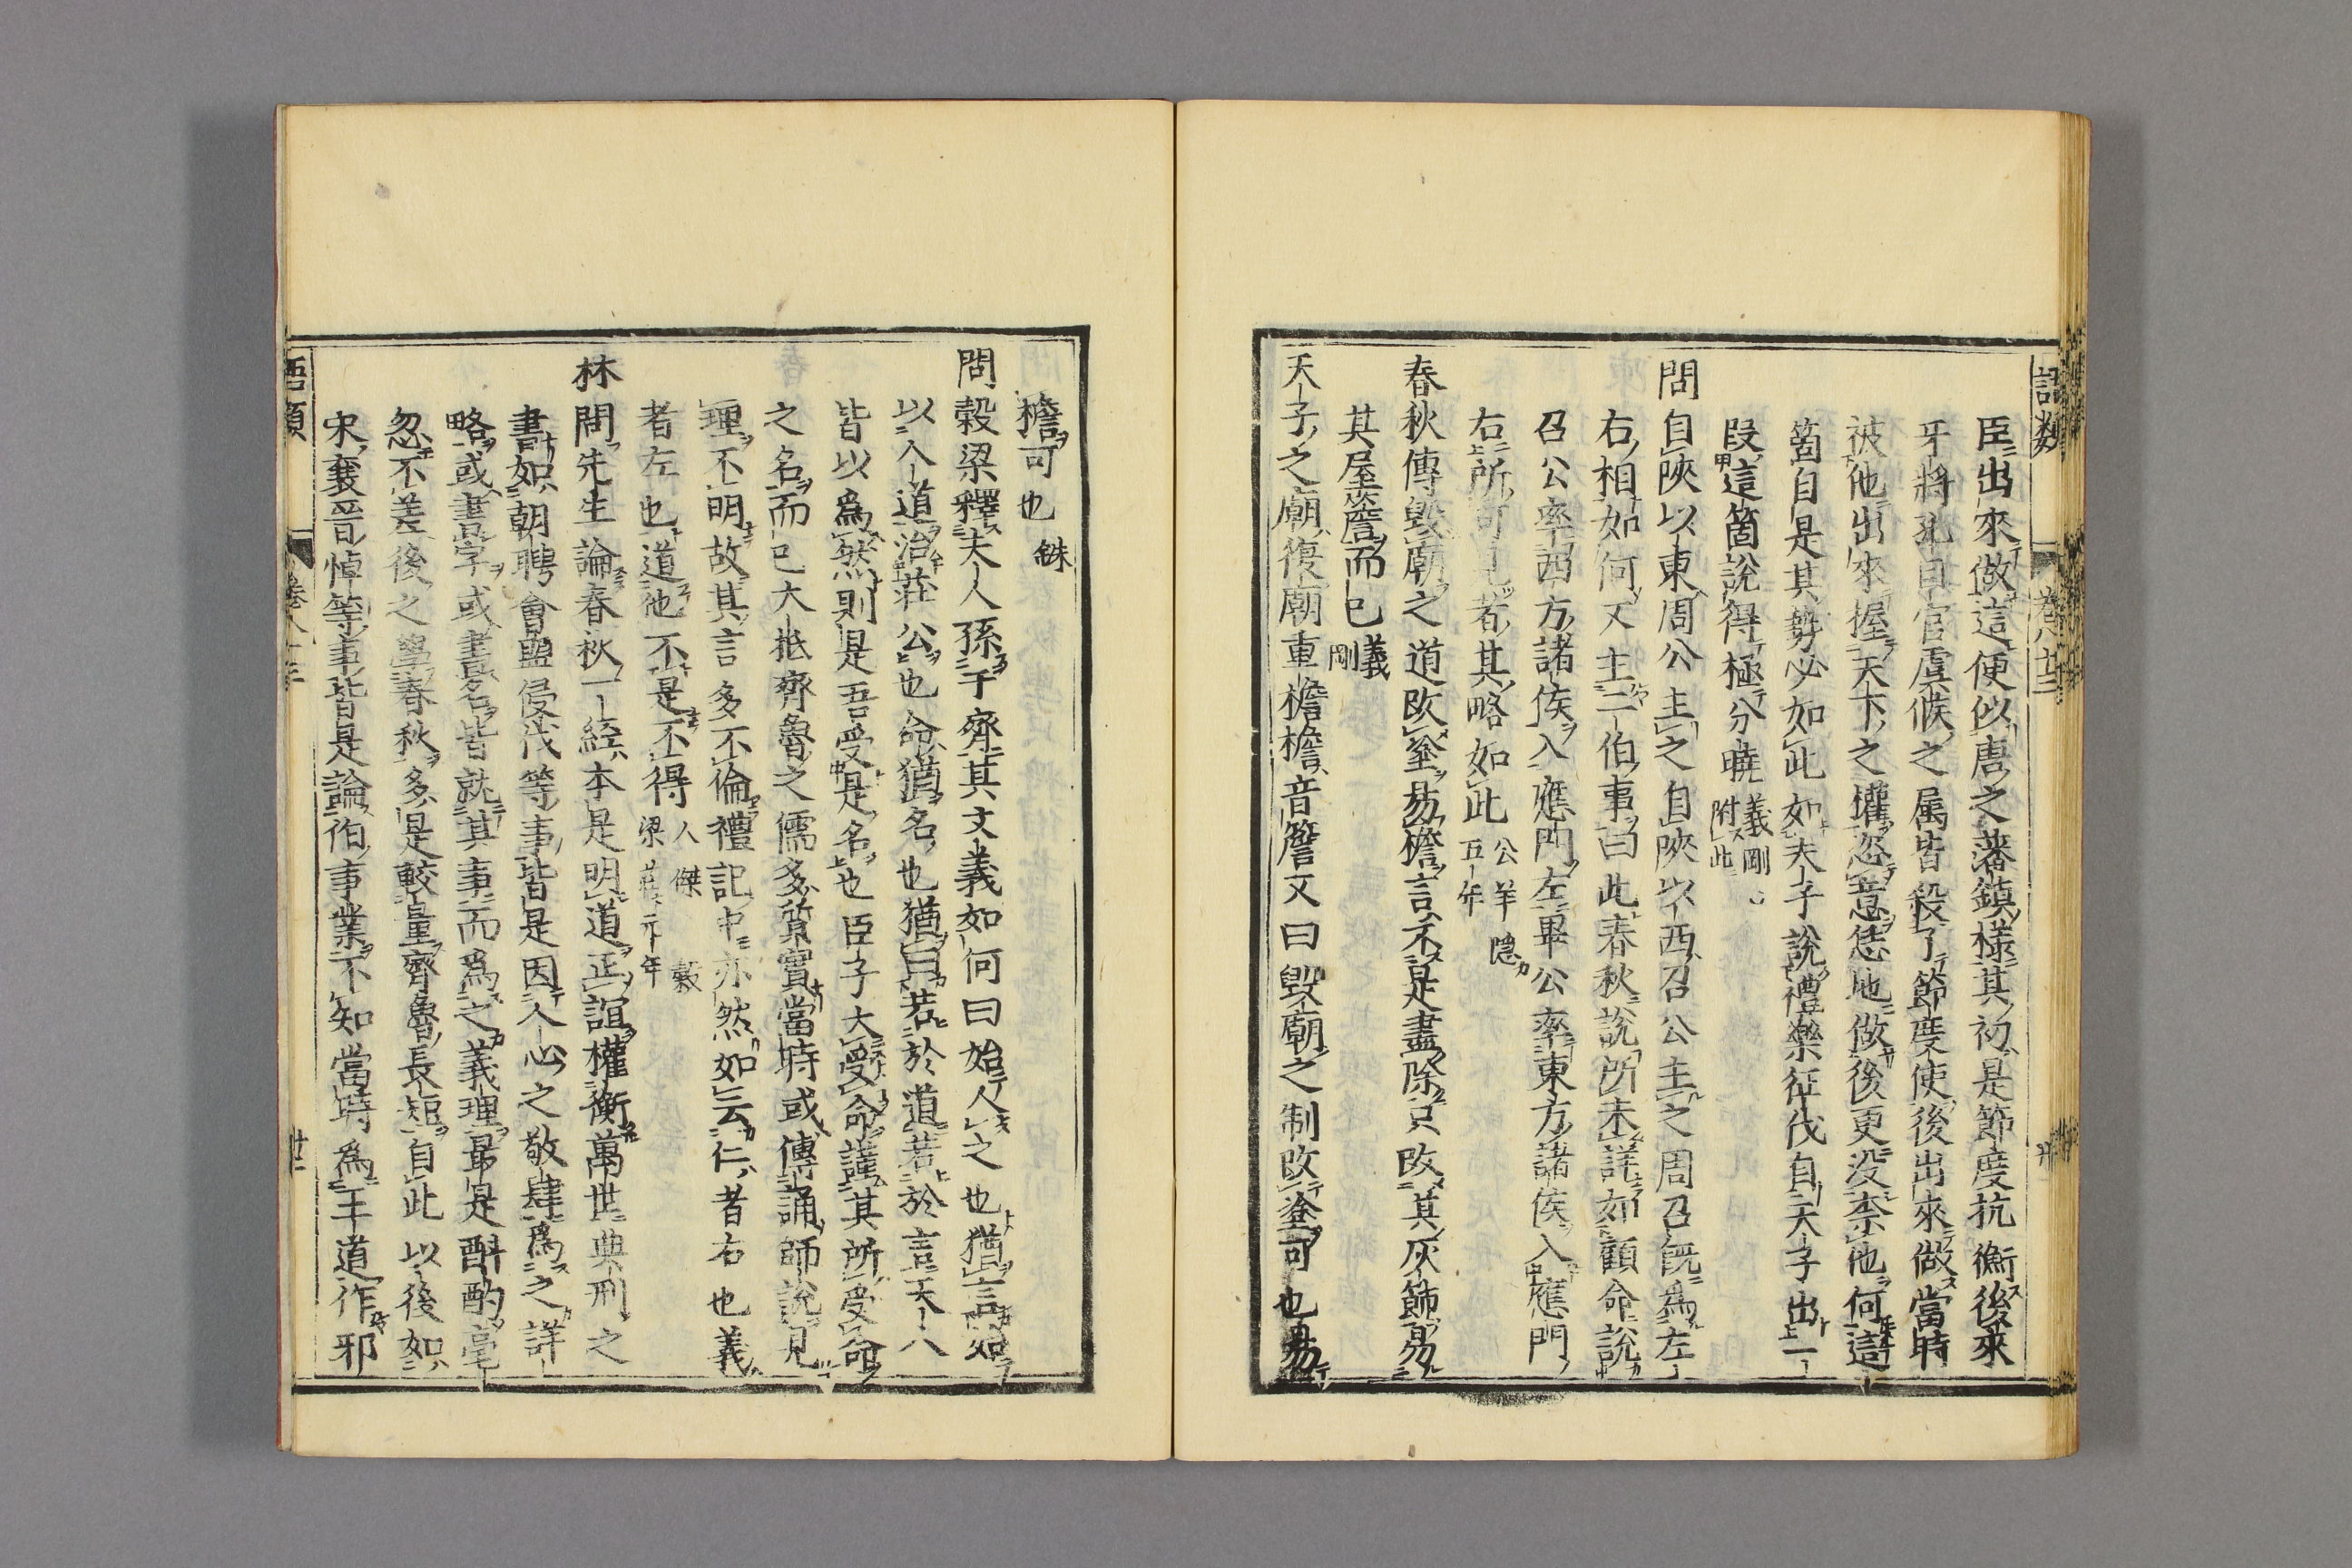 語類 卷八十三
臣出來做這便似唐之藩鎮樣其初是節度抗衡後來
牙將孔目官虞候之屬皆殺了節度使後出來做當時
被他出來握天下之權恣意恁地做後更没柰他何這
箇自是其勢必如此如夫子說禮樂征伐自天子出一
段這箇說得極分曉義剛附此
問自陝以東周公主之自陝以西召公主之周召既爲左
右相如何又主二伯事曰此春秋說所未詳如顧命說
召公率西方諸侯入應門左畢公率東方諸侯入應門
右所可見者其略如此公羊隱五年
春秋傳毁廟之道改塗易檐言不是盡除只改其灰飾易
其屋簷而已義剛
天子之廟復廟重檐檐音簷又曰毁廟之制改塗可也易
檐可也銖
問穀梁釋夫人孫于齊其文義如何曰始人之也猶言始
以人道治莊公也命猶名也猶曰若於道若於言天人
皆以爲然則是吾受是名也臣子大受命謹其所受命
之名而已大抵齊魯之儒多質實當時或傳誦師說見
理不明故其言多不倫禮記中亦然如云仁者右也義
者左也道他不是不得人傑穀梁莊元年
林問先生論春秋一經本是明道正誼權衡萬世典刑之
書如朝聘會盟侵伐等事皆是因人心之敬肆爲之詳
略或書字或書名皆就其事而爲之義理最是斟酌毫
忽不差後之學春秋多是較量齊魯長短自此以後如
宋襄晉悼等事皆是論伯事業不知當時爲王道作邪
語類 卷八十三